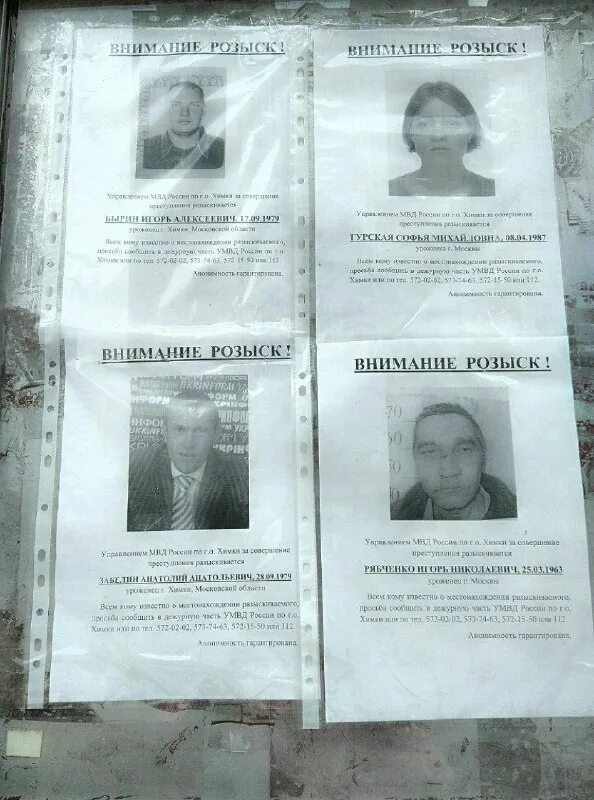 ВНИМАНИЕ РОЗЫСК !
Управлением МВД России по г.о. Химки за совершение
преступления разыскивается
БЫРИН ИГОРЬ АЛЕКСЕЕВИЧ, 17.09.1979
уроженец г. Химки, Московской области
Всем кому известно о местонахождении разыскиваемого,
просьба сообщить в дежурную часть УМВД России по г.о.
Химки или по тел. 572-02-02, 573-74-63, 572-15-50 или 112.
Анонимность гарантирована.
ВНИМАНИЕ РОЗЫСК !
Управлением МВД России по г.о. Химки за совершение
преступления разыскивается
ГУРСКАЯ СОФЬЯ МИХАЙЛОВНА, 08.04.1987
уроженка г. Москвы
Всем кому известно о местонахождении разыскиваемого,
просьба сообщить в дежурную часть УМВД России по г.о.
Химки или по тел. 572-02-02, 573-74-63, 572-15-50 или 112.
Анонимность гарантирована.
ВНИМАНИЕ РОЗЫСК !
UKRINFORM
Управлением МВД России по г.о. Химки за совершение
преступления разыскивается
ЗАБЕЛИН АНАТОЛИЙ АНАТОЛЬЕВИЧ, 28.09.1979
уроженец г. Химки, Московской области
Всем кому известно о местонахождении разыскиваемого,
просьба сообщить в дежурную часть УМВД России по г.о.
Химки или по тел. 572-02-02, 573-74-63, 572-15-50 или 112.
Анонимность гарантирована.
ВНИМАНИЕ РОЗЫСК !
70
60
50
Управлением МВД России по г.о. Химки за совершение
преступления разыскивается
РЯБЧЕНКО ИГОРЬ НИКОЛАЕВИЧ, 25.03.1963
уроженец г. Москвы
Всем кому известно о местонахождении разыскиваемого,
просьба сообщить в дежурную часть УМВД России по г.о.
Химки или по тел. 572-02-02, 573-74-63, 572-15-50 или 112.
Анонимность гарантирована.